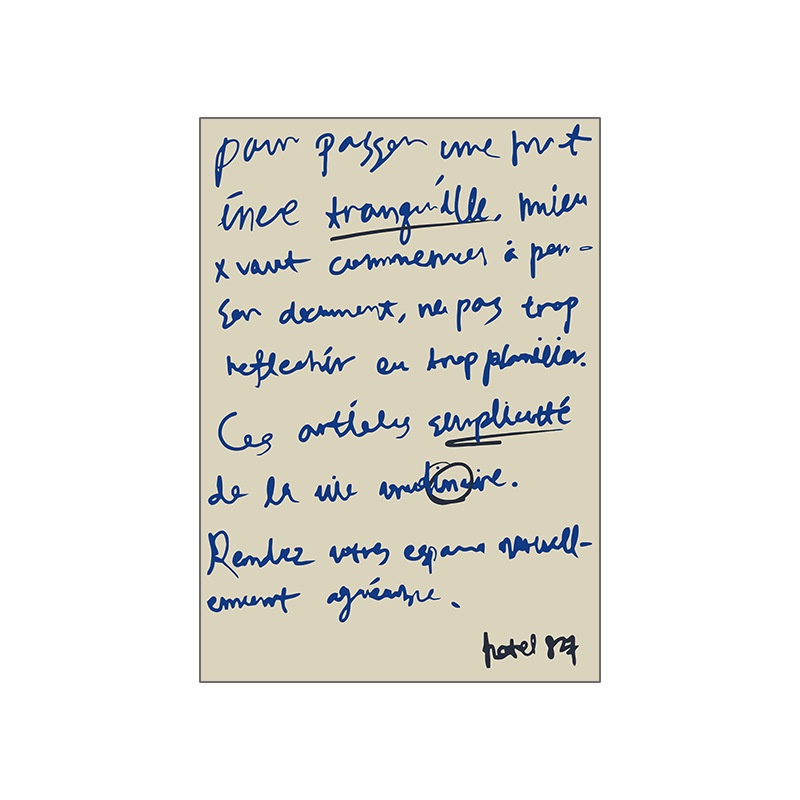 pour passer une
tranquille, mieu
x vaut commencer à pen-
ser document, ne pas trop
reflechir ou trop planifier.
Ces articles simplicité
de la vie
Rendez votres espace
agréable.
hotel 827